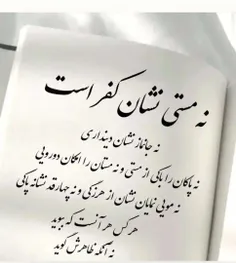 نه مستی نشان کفر است
نه جانماز نشان دینداری
نه پاکان را باکی از مستی و نه مستان را امکان دورویی
نه مویی نمایان نشان از هرزگی و نه چهارقد نشانه پاکی
هرکس هر آنست که بپوید
نه آنکه ظاهرش گوید